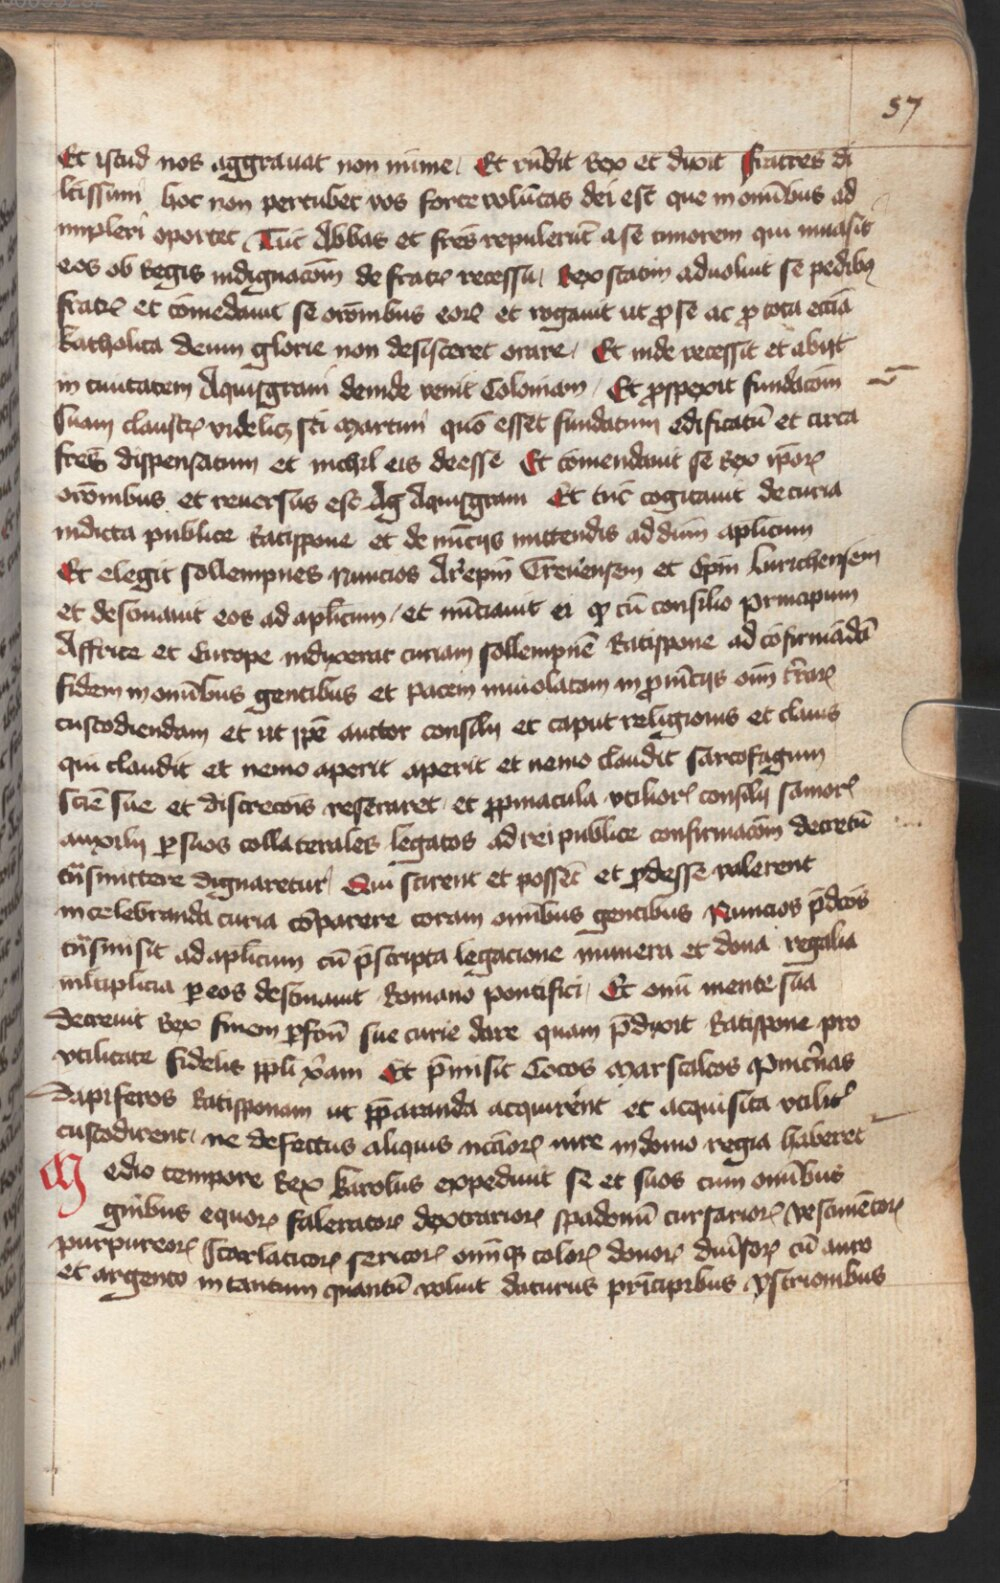 57
Et istud nos aggrauat non mime. Et rñdit Rex et dixit ffratres di
lctissimi hoc non perturbet vos forte volūtas dei est que in omībus ad
impleri oportet. Tūc Abbas et frēs repulerūt a se timorem qui inuasit
eos ob Regis indignacōm de fratꝝ recessu. Rex statim aduoluit se pedibꝫ
fratꝝ et cōmedauit se orōnibus eoꝝ et rogauit ut ꝓ se ac ꝓ tota eccīa
katholica deum glorie non desisteret orare. Et inde recessit et abijt
in ciuitatem Aquisgrani deinde venit Coloniam. Et ꝓspexit fundacōm
suam claustꝝ videlicꝫ sti Martini quō esset fundatum edificatū et circa
frēs dispensatum et nichil eis deesse Et cōmendauit se Rex ipoꝝ
orōnibus et reuersus est Ag Aquisgrani Et tūc cogitauit de curia
indicta publice Ratispone et de nūcijs mittendis ad dūm aplicum
Et elegit sollempnes Nuncios Arepm̄ Treuensem et Epm̄
et destinauit eos ad aplicum. et nūciauit ei ꝙ cū consilio principum
Affrice et Europe indixerat curiam sollempnē Ratispone ad cōfirmādā
fidem in omībus gentibus et pacem inuiolatam in ꝓuīcijs oīm trāꝝ
custodiendam et ut ipē auctor consilij et caput religionis et clauis
qui claudit et nemo aperit aperit et nemo claudit sarcofagum
sciē sue et discrecōis reseraret. et ꝓpinacula vtilioꝝ consilij sanioꝝ
auxilij ꝑ suos collaterales legatos ad rei publice confirmacōm decretū
tn̄smittere dignaretur Qui scirent et possēt et ꝓdesse valerent
in celebranda curia cōparere coram omībus gentibus Nuncios p̄dcōs
tn̄smisit ad aplicum cū p̄scripta legacione munera et dona regalia
multiplicia ꝑ eos destinauit Romano pontifici. Et omī mente sua
decreuit Rex finem sue curie dare quam p̄dixit Ratispone pro
vtilitate fidelis ppli xp̄iani Et p̄misit Cocos Marscalcos Pincernas
Dapiferos Ratisponam ut p̄paranda acquirerent et acquisita vtilitꝰ
custodirent. ne defectus aliquis in domo regia haberet
Medio tempore Rex karolus expediuit se et suos cum omībus
gnībus equoꝝ faleratoꝝ dextrarioꝝ spadonū cursarioꝝ vestimētoꝝ
purpureoꝝ Scarlaticoꝝ sericoꝝ omīqꝫ coloꝝ donoꝝ diuīsoꝝ cū auro
et argento in tantum quantū voluit daturus principibus ystrionibus